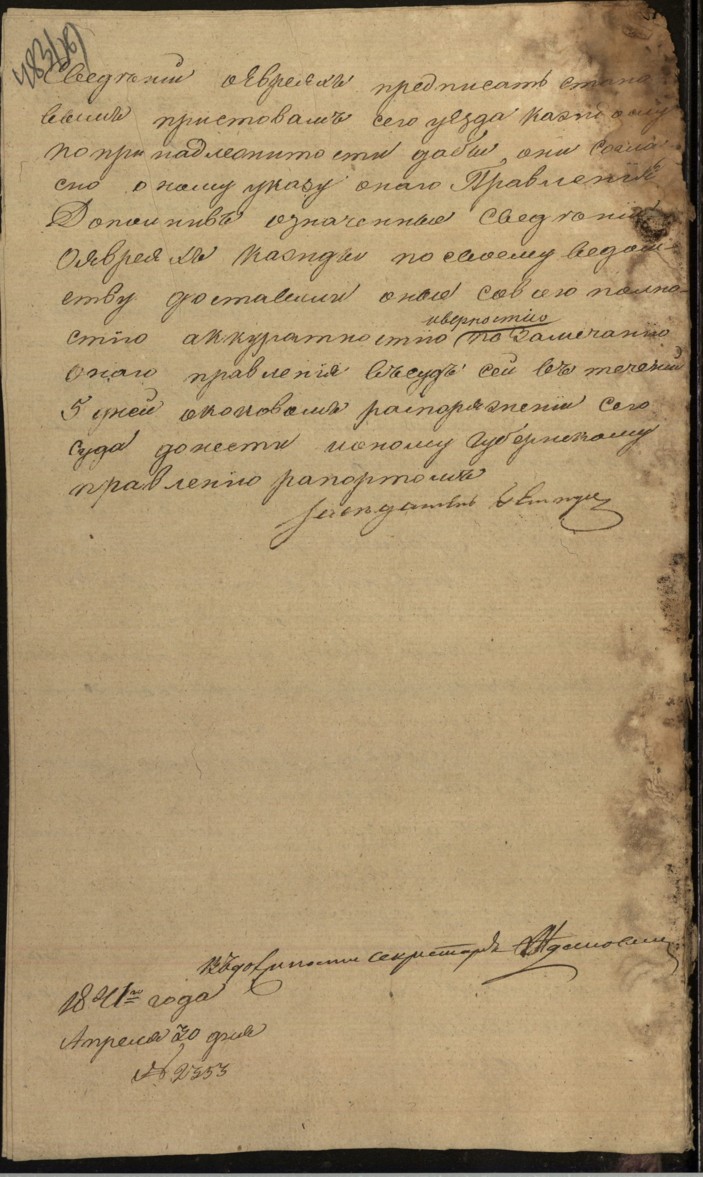 483(об)
Сведѣнии оЕвреяхъ предписать стано
вымъ приставамъ сего уезда каждому
по принадлежности дабы они согла
сно оному указу онаго Правления
Дополнивъ означенные сведѣнии
оЕвреяхъ каждый по своему ведом
ству доставили оные совсею полно
стiю аккуратностiю иверностiю по замечанiю
онаго правленiя въсудъ сей въ течении
5 дней окаковомъ распоряжении сего
суда донести ионому Губернскому
правлению рапортомъ
секретарь
1841го года
Апреля 30 дня
№ 2353